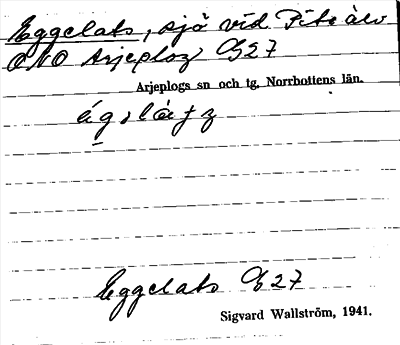 Eggelats, sjö vid Pite älv
ONO Arjeplog G27
Arjeplogs sn och tg. Norrbottens län.
Eggelats G27
Sigvard Wallström, 1941.